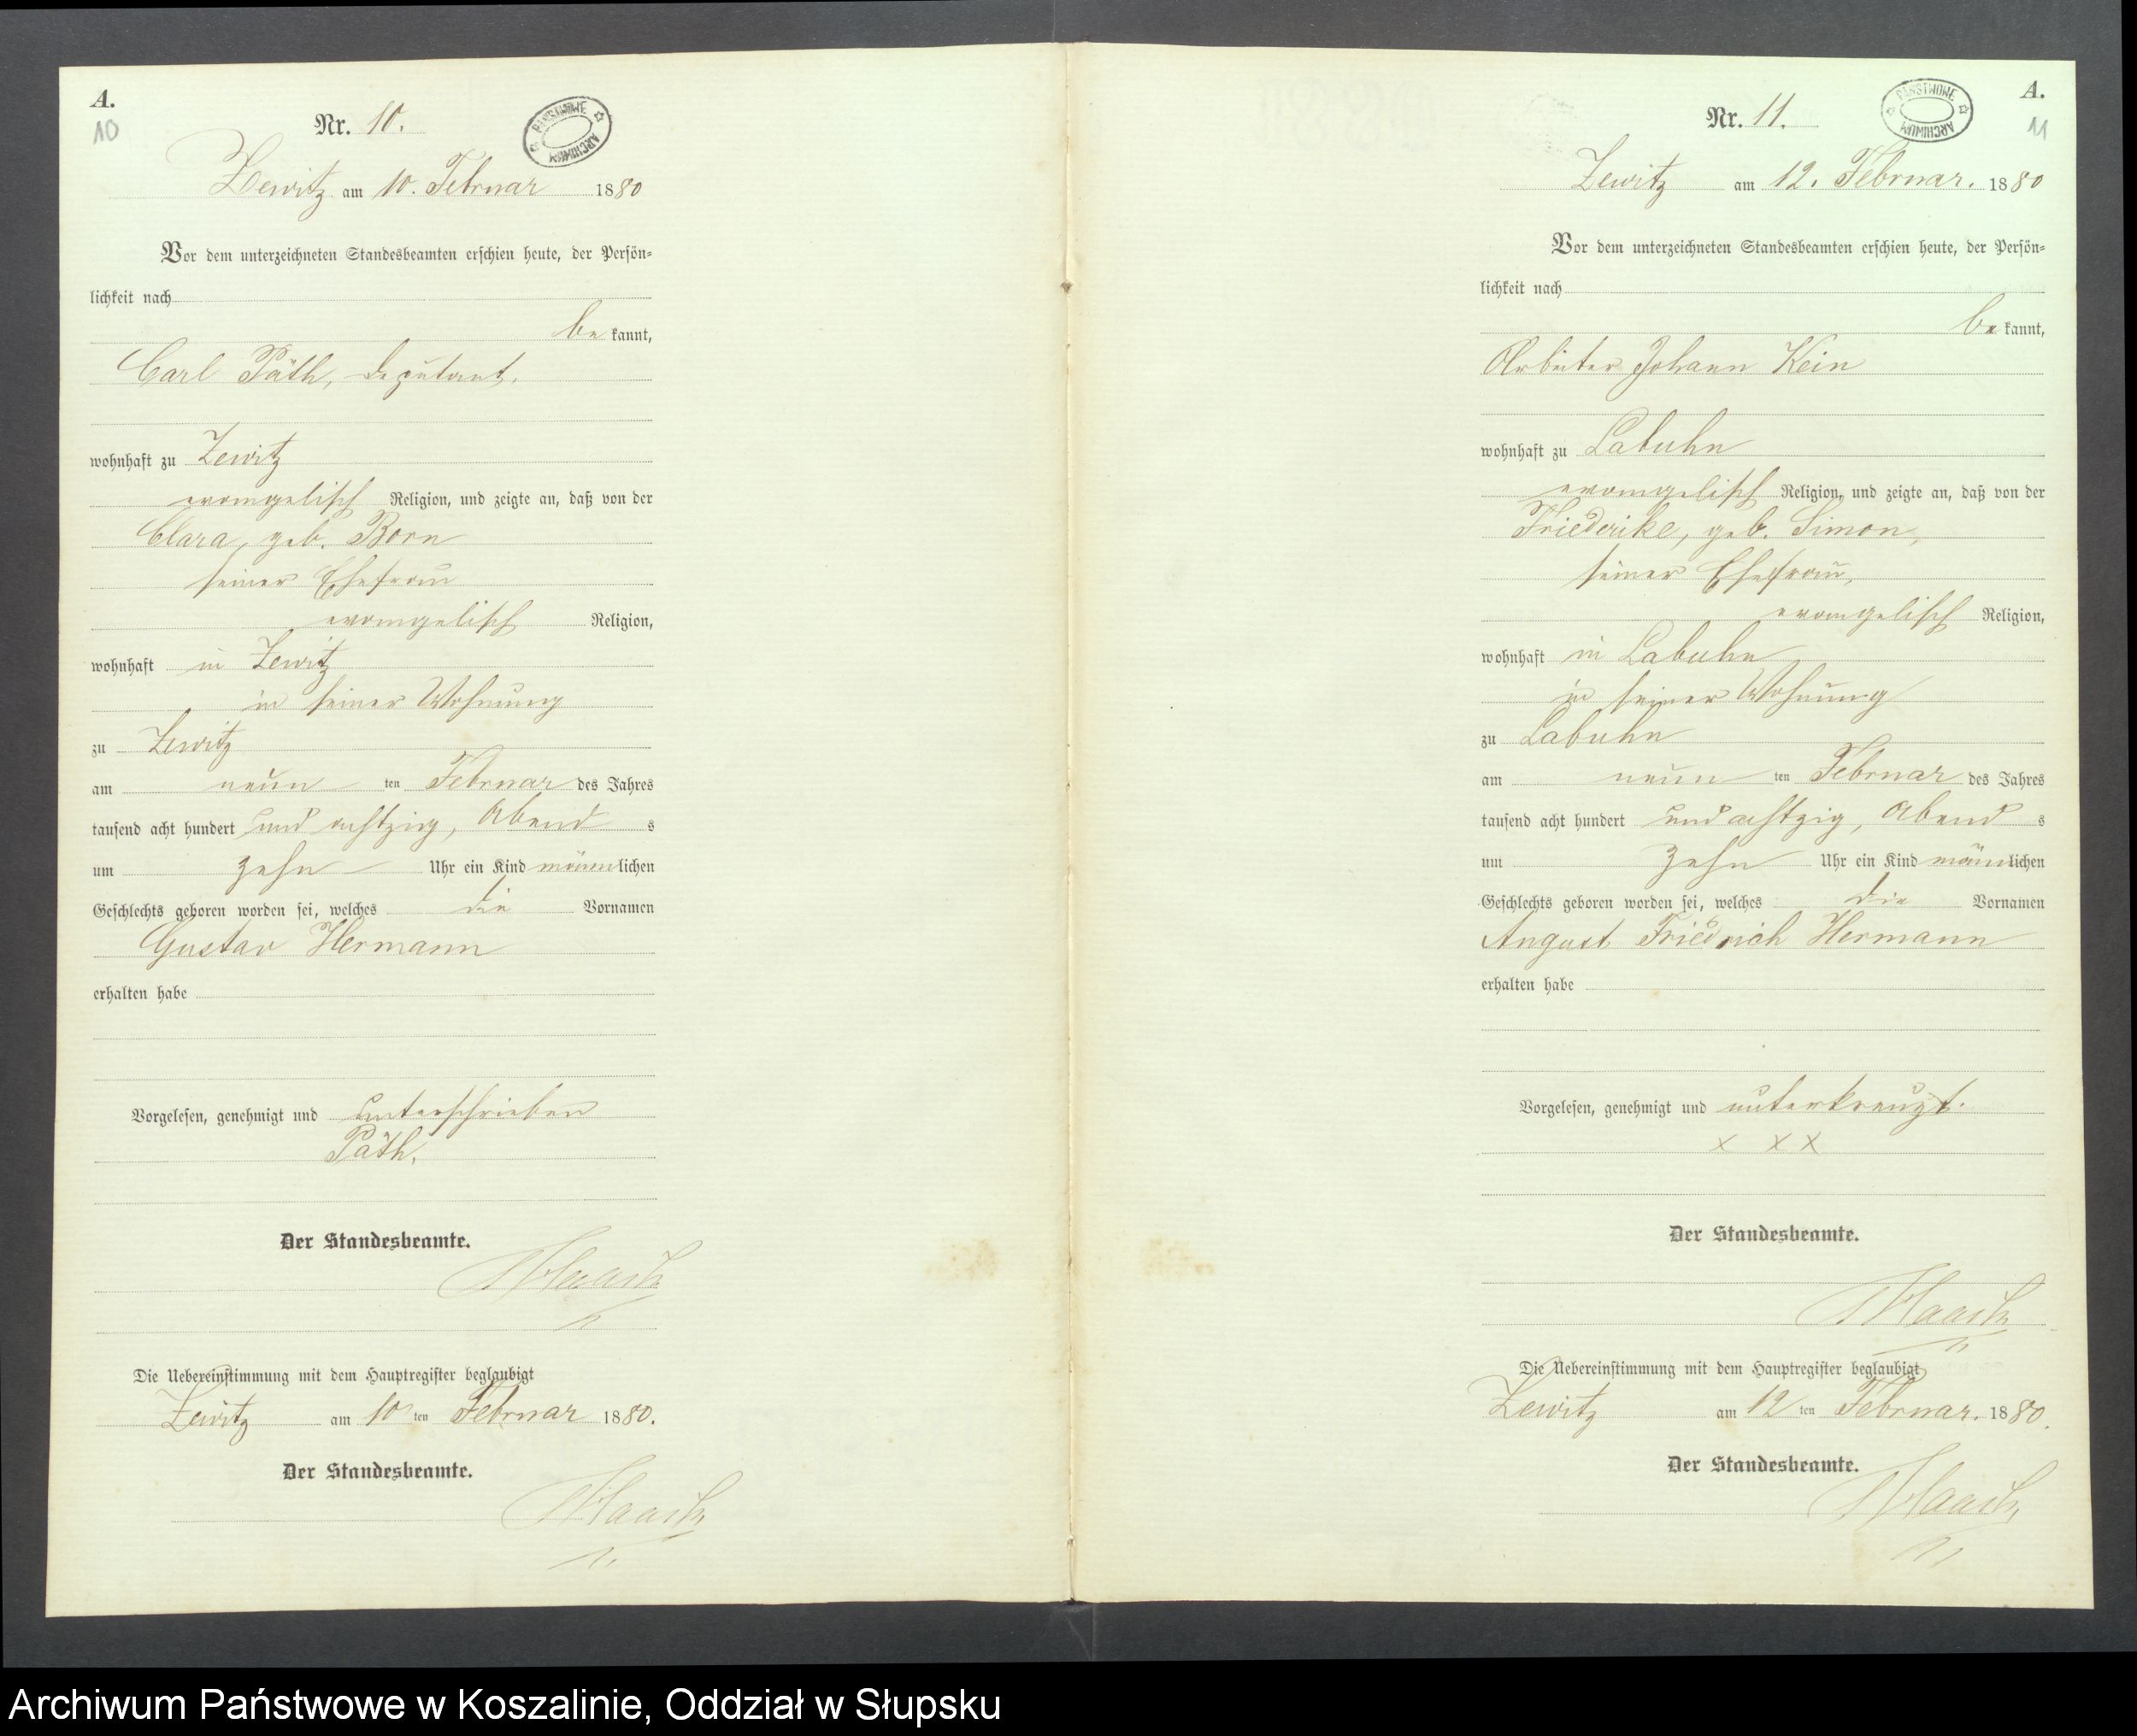 A.
10
Nr. 10.
PAŃSTWOWE ARCHIWUM
Zewitz am 10. Februar 1880
Vor dem unterzeichneten Standesbeamten erschien heute, der Persön-
lichkeit nach
be kannt,
Carl Päth, Deputant.
wohnhaft zu Zewitz
evangelisch Religion, und zeigte an, daß von der
Clara, geb. Born
seiner Ehefrau
evangelisch Religion,
wohnhaft in Zewitz
in seiner Wohnung
zu Zewitz
am neun ten Februar des Jahres
tausend acht hundert und achtzig, Abend s
um zehn Uhr ein Kind männlichen
Geschlechts geboren worden sei, welches die Vornamen
Gustav Hermann
erhalten habe
Vorgelesen, genehmigt und unterschrieben
Päth.
Der Standesbeamte.
Die Uebereinstimmung mit dem Hauptregister beglaubigt
Zewitz am 10 ten Februar 1880.
Der Standesbeamte.
A.
11
Nr. 11.
PAŃSTWOWE ARCHIWUM
Zewitz am 12. Februar. 1880
Vor dem unterzeichneten Standesbeamten erschien heute, der Persön-
lichkeit nach
be kannt,
Arbeiter Johann Kein
wohnhaft zu Labuhn
evangelisch Religion, und zeigte an, daß von der
Friederike, geb. Simon,
seiner Ehefrau,
evangelisch Religion,
wohnhaft in Labuhn
in seiner Wohnung
zu Labuhn
am neun ten Februar des Jahres
tausend acht hundert und achtzig, Abend s
um zehn Uhr ein Kind männlichen
Geschlechts geboren worden sei, welches die Vornamen
August Friedrich Hermann
erhalten habe
Vorgelesen, genehmigt und unterkreuzt.
x x x
Der Standesbeamte.
Die Uebereinstimmung mit dem Hauptregister beglaubigt
Zewitz am 12 ten Februar. 1880.
Der Standesbeamte.
Archiwum Państwowe w Koszalinie, Oddział w Słupsku